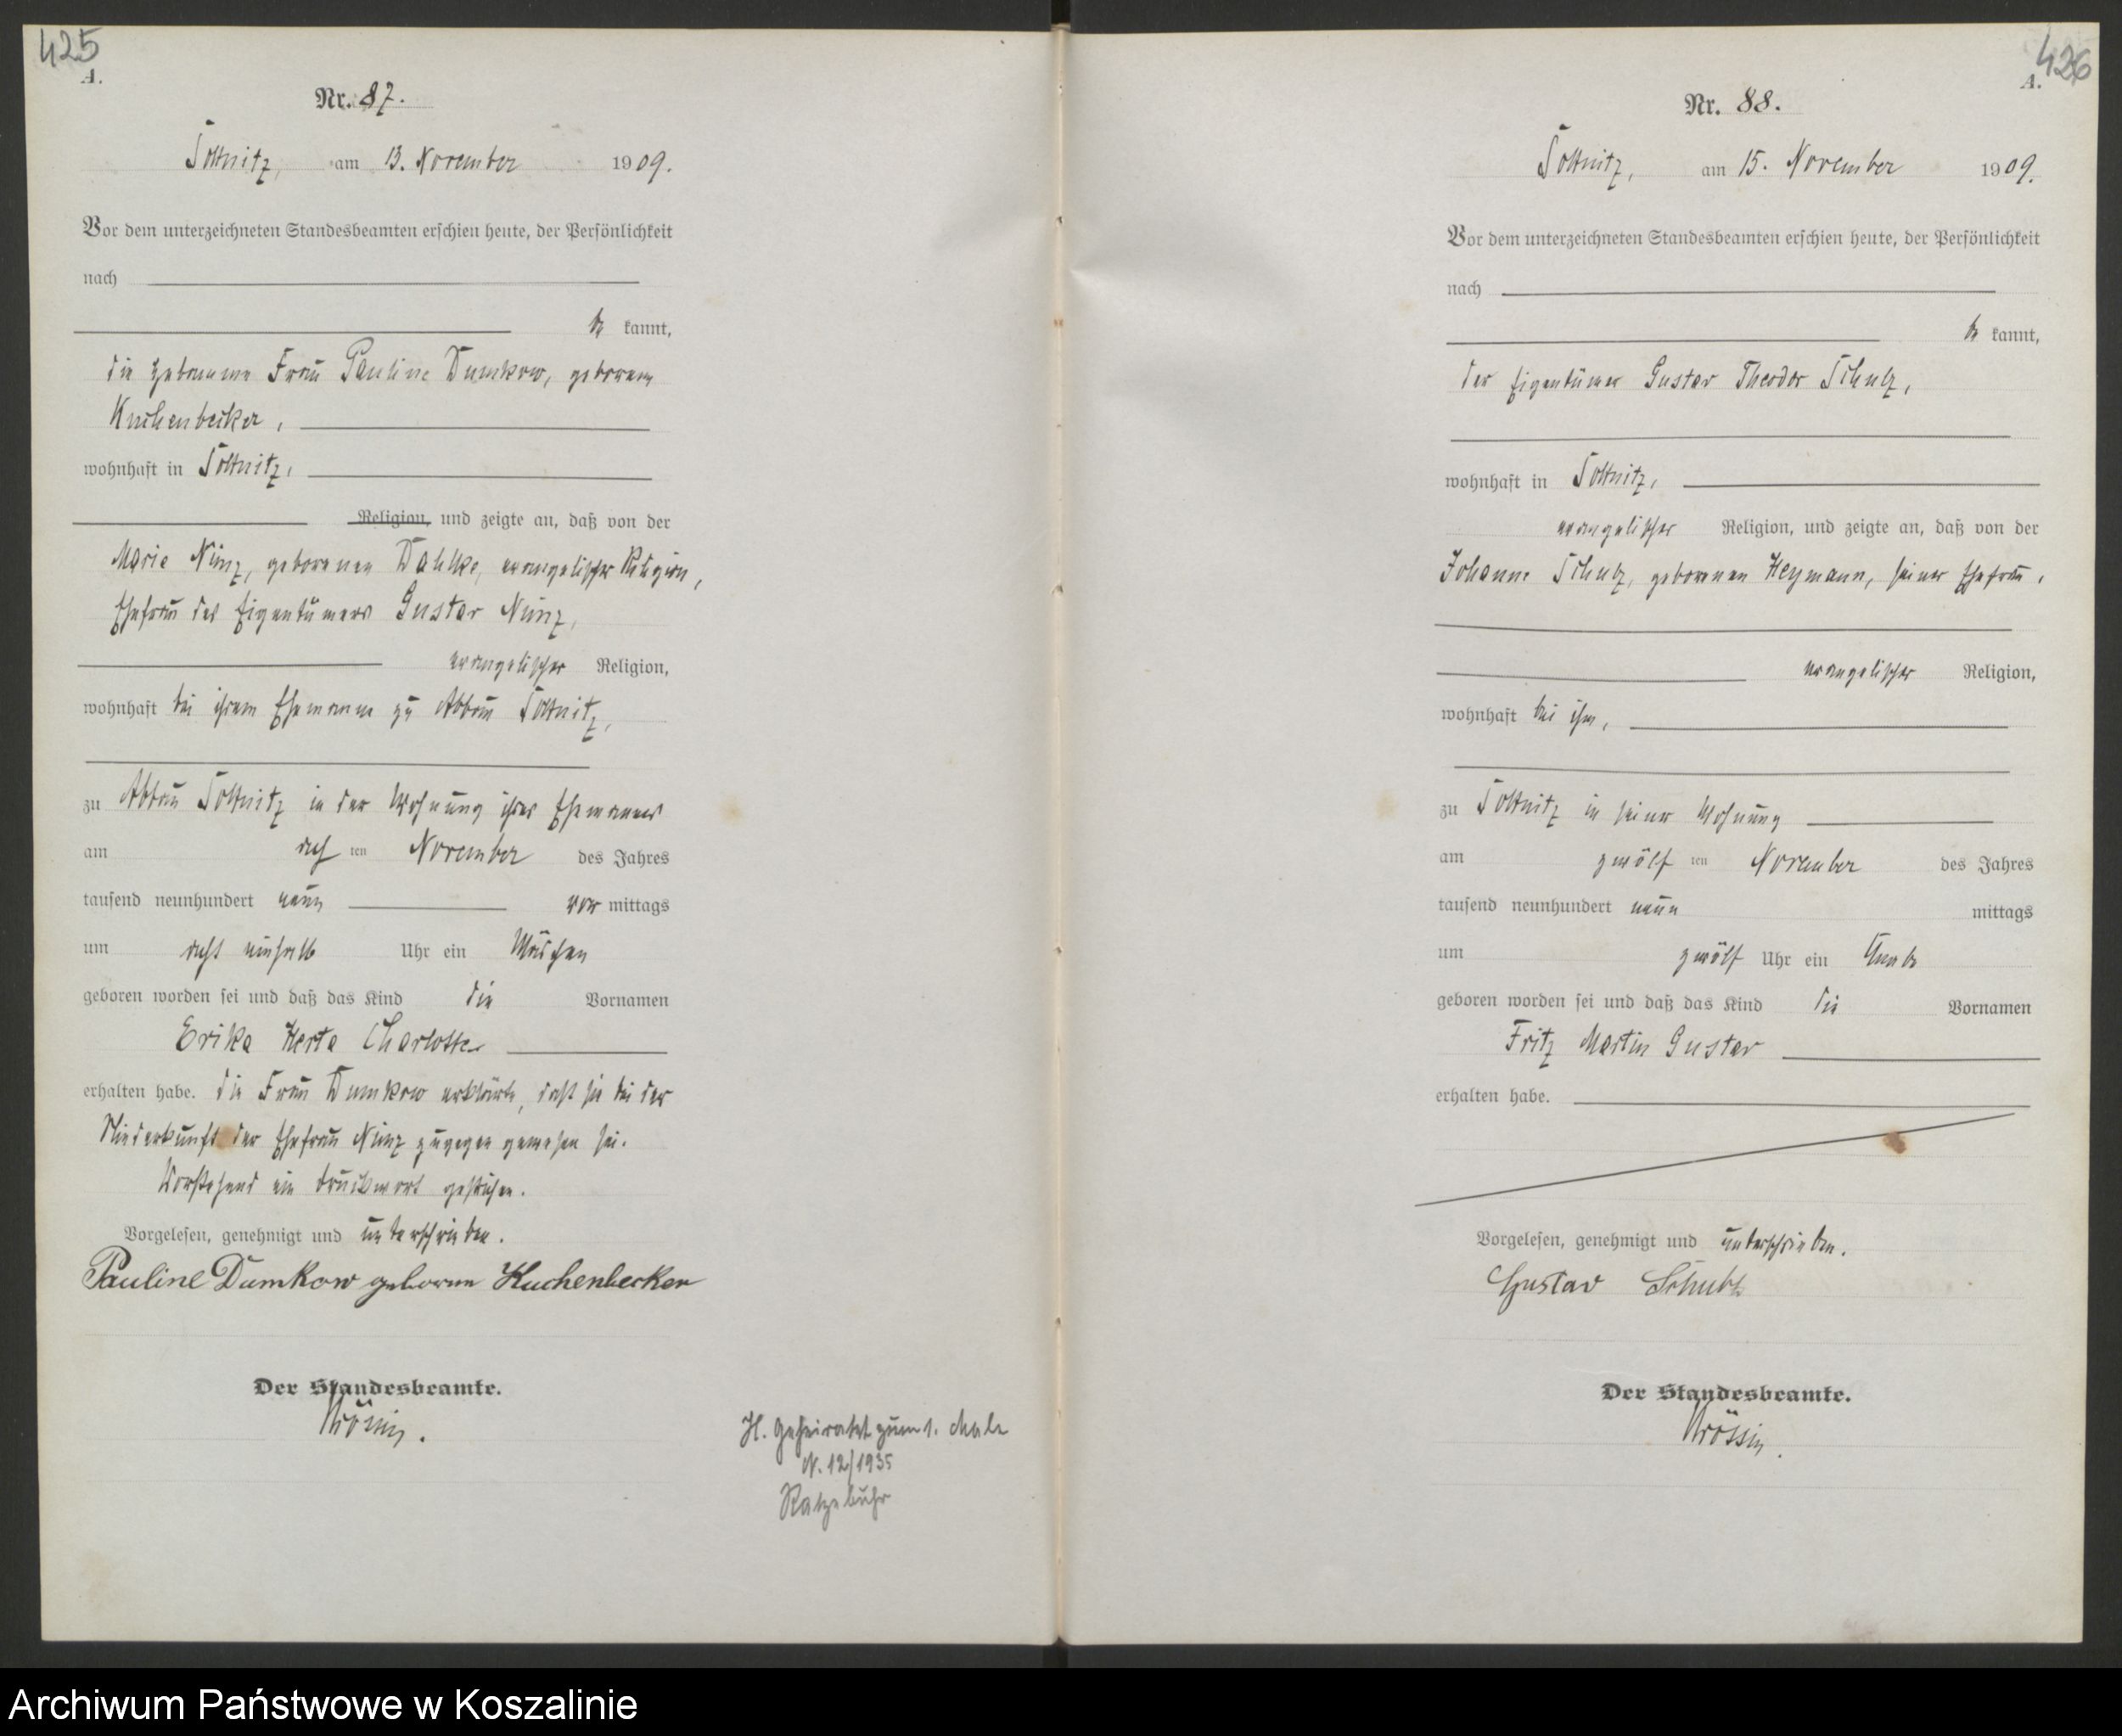 425
A.
Nr. 87.
Soltnitz, am 13. November 1909.
Vor dem unterzeichneten Standesbeamten erschien heute, der Persönlichkeit
nach
be kannt,
die Hebamme Frau Pauline Dumkow, geborene
Kuchenbecker,
wohnhaft in Soltnitz,
Religion, und zeigte an, daß von der
Marie Nünz, geborenen Dahlke, evangelischer Religion,
Ehefrau des Eigentümers Gustav Nünz,
evangelischer Religion,
wohnhaft bei ihrem Ehemanne zu Abbau Soltnitz,
zu Abbau Soltnitz in der Wohnung ihres Ehemannes
am acht ten November des Jahres
tausend neunhundert neun vor mittags
um acht einhalb Uhr ein Mädchen
geboren worden sei und daß das Kind die Vornamen
Erika Herta Charlotte
erhalten habe. Die Frau Dumkow erklärte, daß sie bei der
Niederkunft der Ehefrau Nünz zugegen gewesen sei.
Vorstehend ein Druckwort gestrichen.
Vorgelesen, genehmigt und unterschrieben.
Pauline Dumkow geborene Kuchenbecker
Der Standesbeamte.
Krössin.
H. Geheiratet zum 1. Male
N. 12/1935
Ratzebuhr
426
A.
Nr. 88.
Soltnitz, am 15. November 1909.
Vor dem unterzeichneten Standesbeamten erschien heute, der Persönlichkeit
nach
be kannt,
der Eigentümer Gustav Theodor Schulz,
wohnhaft in Soltnitz,
evangelischer Religion, und zeigte an, daß von der
Johanne Schulz, geborenen Heymann, seiner Ehefrau,
evangelischer Religion,
wohnhaft bei ihm,
zu Soltnitz in seiner Wohnung
am zwölf ten November des Jahres
tausend neunhundert neun mittags
um zwölf Uhr ein Knabe
geboren worden sei und daß das Kind die Vornamen
Fritz Martin Gustav
erhalten habe.
Vorgelesen, genehmigt und unterschrieben.
Gustav Schulz
Der Standesbeamte.
Krössin.
Archiwum Państwowe w Koszalinie